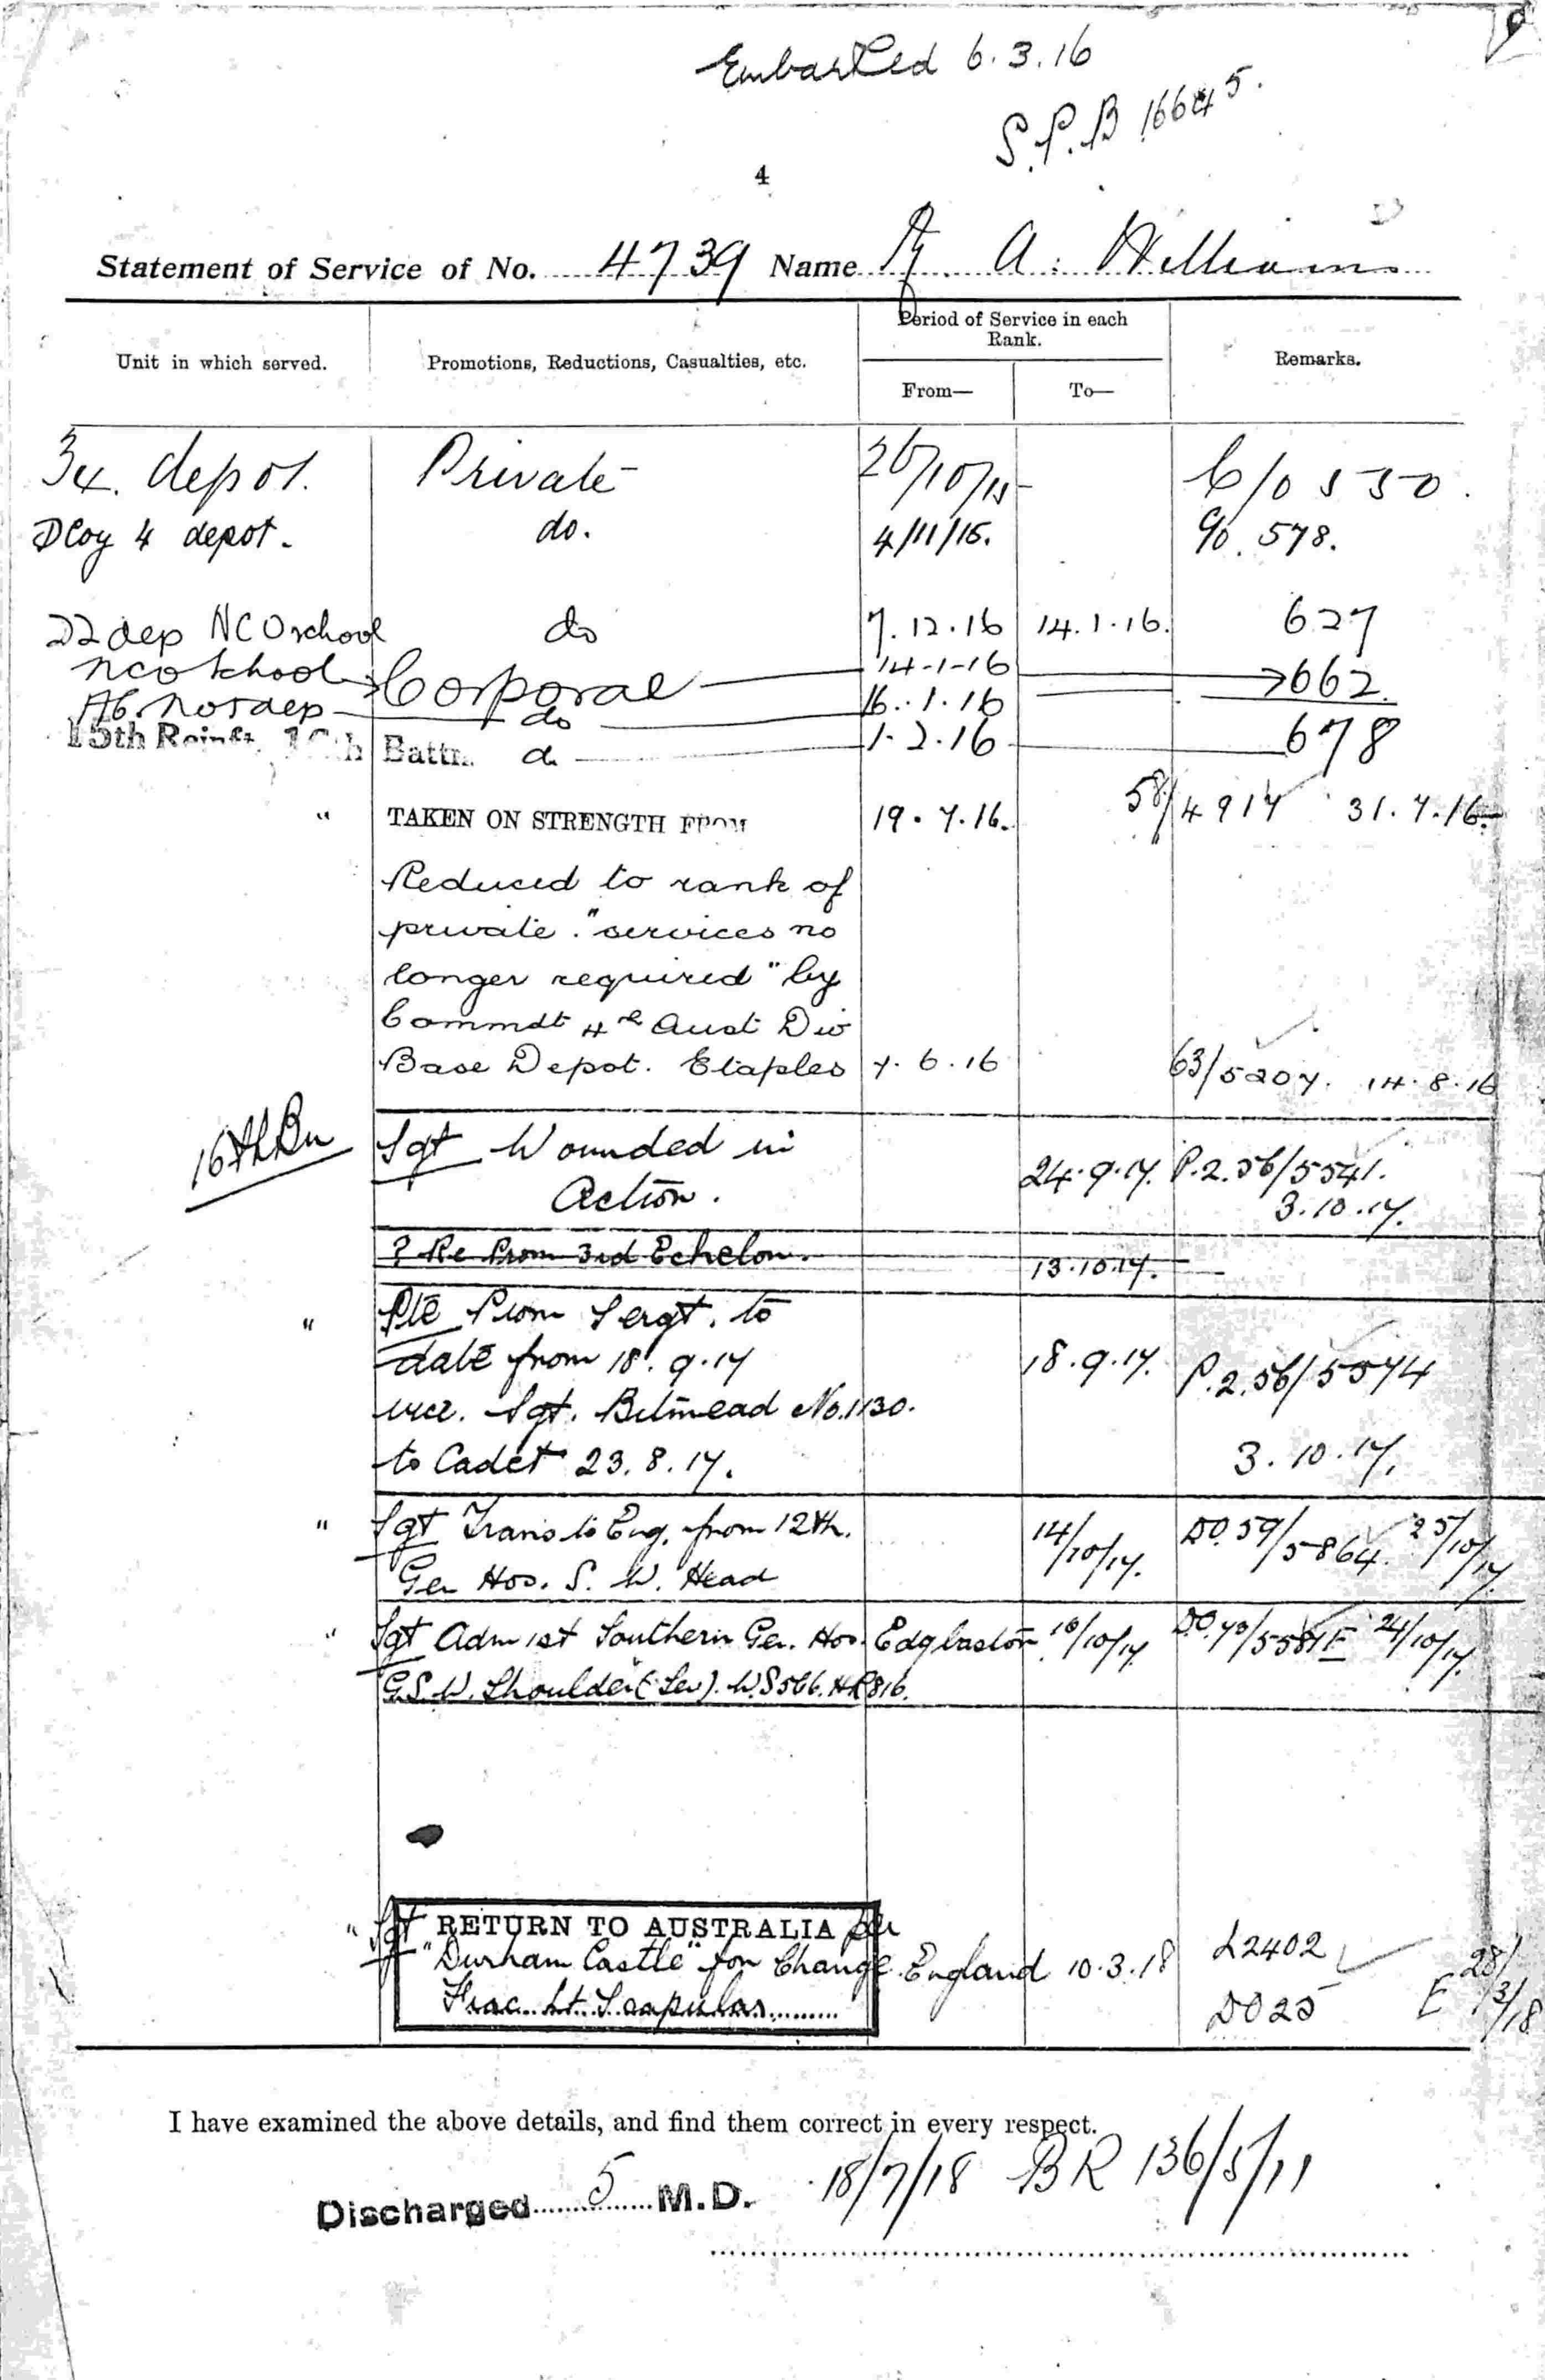 Embarked 6.3.16
S.P.B 16645.
4
Statement of Service of No. 4739 Name A. Williams
Unit in which served. Promotions, Reductions, Casualties, etc. Period of Service in each Rank. From— To— Remarks.
34. depot. Private 26/10/15 C/O 550.
D Coy 4 depot. do. 4/11/15. C/O. 578.
22 dep NCO school do 7.12.16 14.1.16. 627
NCO School Corporal 14-1-16 662.
do 16.1.16
15th Reinft. 16th Battn. do 1.2.16 678
" TAKEN ON STRENGTH FROM 19.7.16. 58/4917 31.7.16.
Reduced to rank of
private. "services no
longer required" by
Commdt 4th Aust Div
Base Depot. Etaples 7.6.16 63/5207. 14.8.16
16th Bn Sgt Wounded in
Action. 24.9.17. P.2.56/5541.
3.10.17.
Prom 3rd Echelon. 13.10.17.
" Pte Prom Sergt. to
date from 18.9.17 18.9.17. P.2.56/5574
vice. Sgt. Bitmead No. 1130.
to Cadet 23.8.17. 3.10.17.
" Sgt Trans to Eng. from 12th. 14/10/17. DO.59/5864. 25/10/17.
Gen Hos. S. W. Head
" Sgt Adm 1st Southern Gen. Hos. Edgbaston 16/10/17. DO.70/5581E 24/10/17.
G.S.W. Shoulder (Sev). W.S566. HR816.
" Sgt RETURN TO AUSTRALIA per
"Durham Castle" for Change England 10.3.18 L2402
Frac. Lt. Scapular DO25 E 28/3/18
I have examined the above details, and find them correct in every respect.
Discharged 5 M.D. 18/7/18 BR 136/5/11